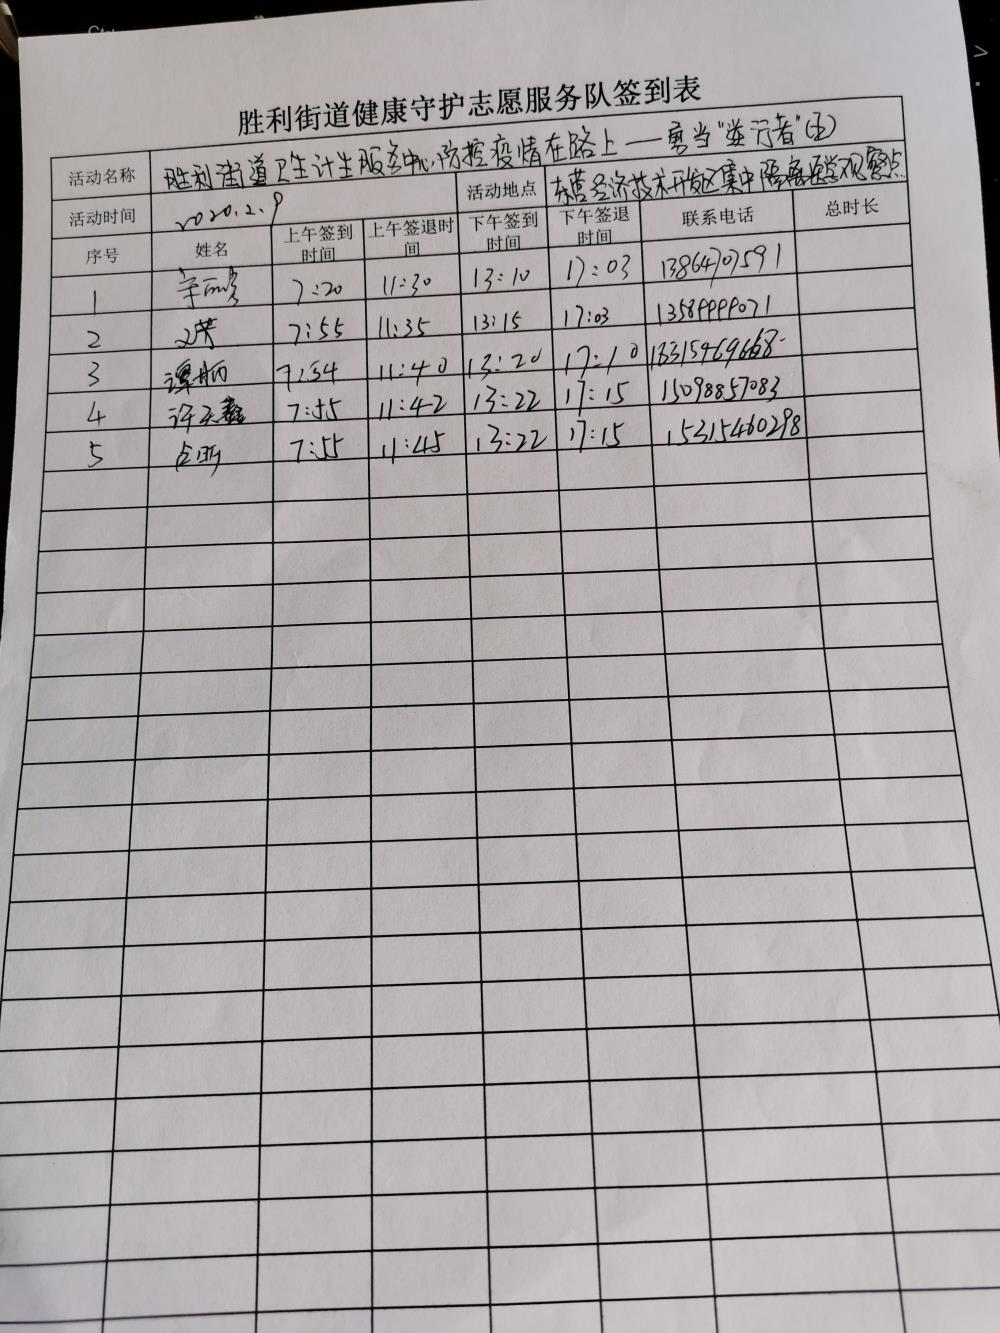 胜利街道健康守护志愿服务队签到表
活动名称 胜利街道卫生计生服务中心防控疫情在路上——勇当"逆行者"(五)
活动时间 2020.2.9 活动地点 东营经济技术开发区集中隔离医学观察点
序号 姓名 上午签到时间 上午签退时间 下午签到时间 下午签退时间 联系电话 总时长
1 7:20 11:30 13:10 17:03 13864707591
2 7:55 11:35 13:15 17:03 13589999071
3 7:54 11:40 13:20 17:10
4 7:55 11:42 13:22 17:15 15098857083
5 7:55 11:45 13:22 17:15 15315460298